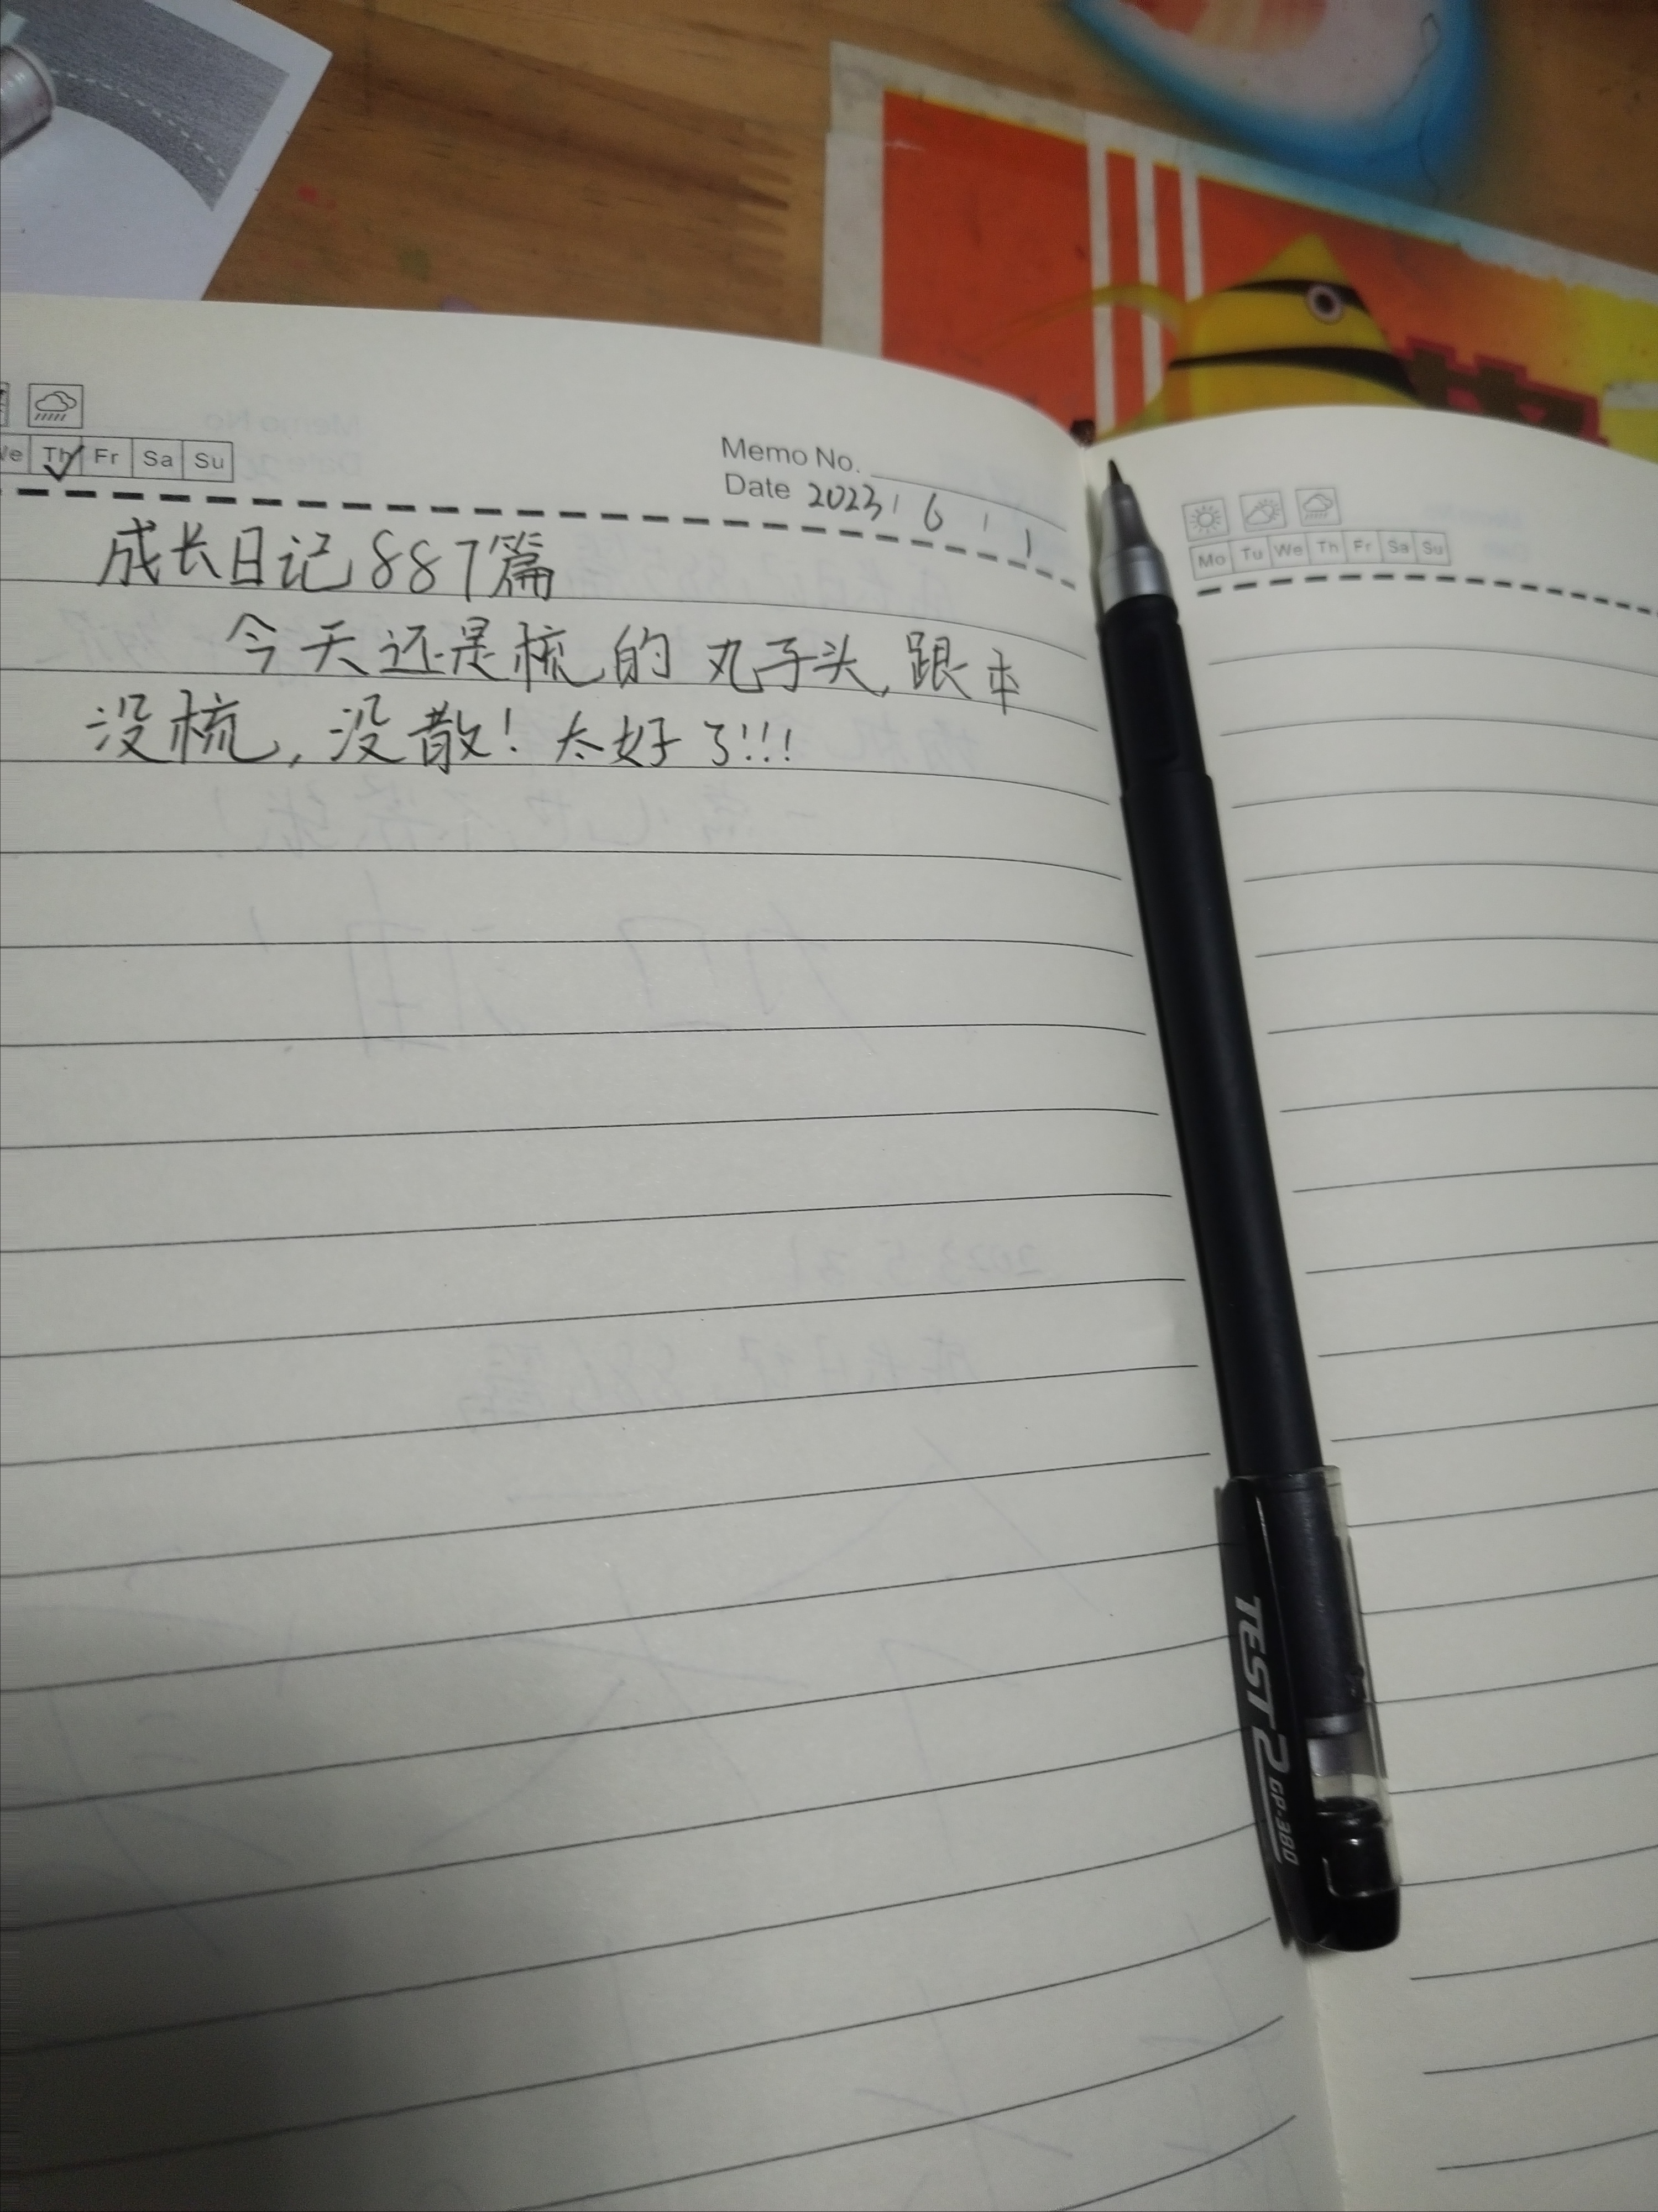 Th Fr Sa Su
Memo No.
Date 2023 / 6 / 1
成长日记887篇
今天还是梳的丸子头,跟本
没梳,没散!太好了!!!
Mo Tu We Th Fr Sa Su
TEST 2 GP-380